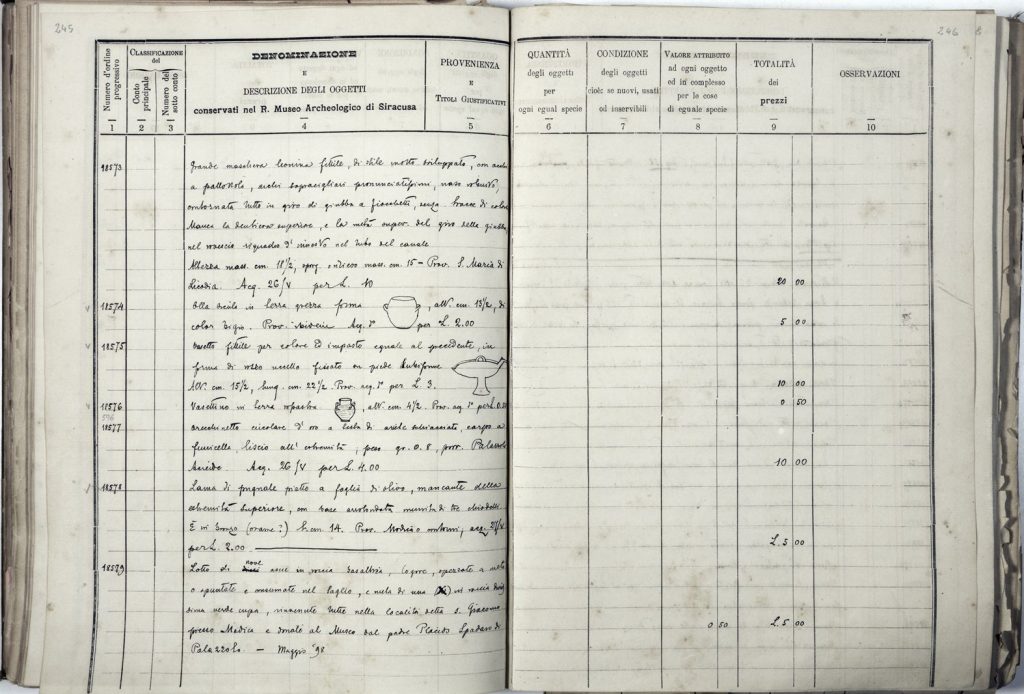 245
246
Numero d'ordine progressivo
CLASSIFICAZIONE del
Conto principale
Numero del sotto conto
DENOMINAZIONE
E
DESCRIZIONE DEGLI OGGETTI
conservati nel R. Museo Archeologico di Siracusa
PROVENIENZA
E
TITOLI GIUSTIFICATIVI
QUANTITÀ
degli oggetti
per
ogni egual specie
CONDIZIONE
degli oggetti
cioè: se nuovi, usati
od inservibili
VALORE ATTRIBUITO
ad ogni oggetto
ed in complesso
per le cose
di eguale specie
TOTALITÀ
dei
prezzi
OSSERVAZIONI
1 2 3 4 5 6 7 8 9 10
18573 Grande maschera leonina fittile, di stile molto sviluppato, con occhi
a pallottola, archi sopracigliari pronunciatissimi, naso
contornata tutto in giro di giubba a fiocchetti, senza tracce di colore
Manca la dentiera superiore, e la metà super. del giro della giubba
nel rovescio riquadro d'innesto nel tubo del canale
Altezza mass. cm. 18 1/2, mass. cm. 15 - Prov. S. Maria di
Licodia. Acq. 26/V per L. 10 20 00
18574 Olla sicula in terra grezza forma , alt. cm. 13 1/2, di
color bigio. Prov. Acq. per L. 2.00 5 00
18575 Vasetto fittile per colore ed impasto eguale al precedente, in
forma di vaso fissato su piede
Alt. cm. 15 1/2, lung. cm. 22 1/2. Prov. acq. per L. 3. 10 00
18576 Vasettino in terra rossastra , alt. cm. 4 1/2. Prov. acq. per L. 0.50 0 50
18577 orecchinetto circolare d'oro a testa di ariete schiacciata, corpo a
funicella, liscio all'estremità, peso gr. 0.8, prov. Palazzolo
Acreide. Acq. 26/V per L. 4.00 10 00
18578 Lama di pugnale piatto a foglia di olivo, mancante della
estremità superiore, con base arrotondata munita di tre chiodetti
È in bronzo (rame?) h. cm. 14. Prov. Modica o contorni, acq. 27/V
per L. 2.00 L. 3 00
18579 Lotto di nove asce in roccia basaltica, logore, spezzate a metà
o spuntate e consumate nel taglio, e metà di una in roccia
verde cupa, rinvenute tutte nella località detta S. Giacomo
presso Modica e donate al Museo dal padre Placido Spadaro di 0 50 L. 5 00
Palazzolo - Maggio '98